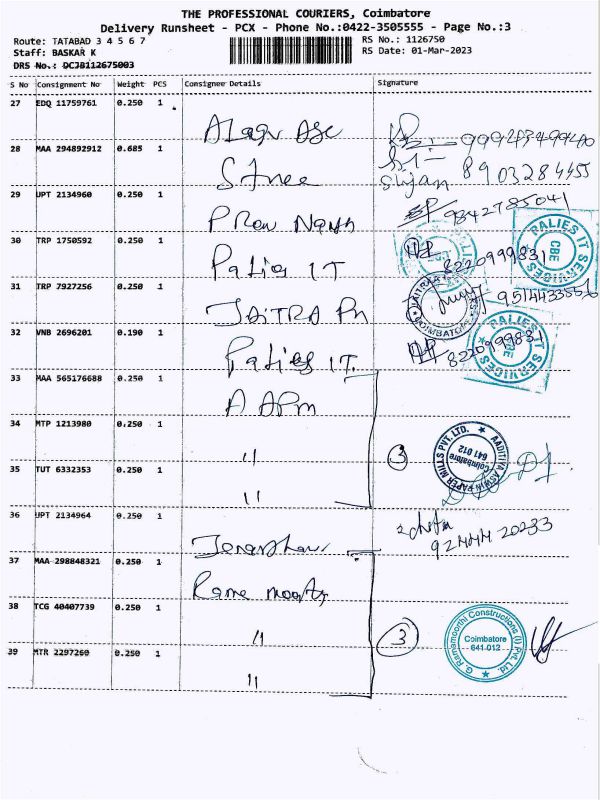 THE PROFESSIONAL COURIERS, Coimbatore
Delivery Runsheet - PCX - Phone No.:0422-3505555 - Page No.:3
Route: TATABAD 3 4 5 6 7 RS No.: 1126750
Staff: BASKAR K RS Date: 01-Mar-2023
DRS No.: DCJB112675003
S No Consignment No Weight PCS Consignee Details Signature
27 EDQ 11759761 0.250 1
28 MAA 294892912 0.685 1
8903284455
29 UPT 2134960 0.250 1
9842785041
30 TRP 1750592 0.250 1 Palies IT 8220999831
PALIES IT SERVICES CBE
31 TRP 7927256 0.250 1 JAITRA
COIMBATORE
32 VNB 2696201 0.190 1 Palies IT. 8220999831
PALIES IT SERVICES CBE
33 MAA 565176688 0.250 1
34 MTP 1213980 0.250 1 " 3
AADITYA ASWIN PAPER MILLS PVT. LTD. Coimbatore 641 012
35 TUT 6332353 0.250 1 "
36 UPT 2134964 0.250 1
37 MAA 298848321 0.250 1
38 TCG 40407739 0.250 1 " 3
G. Ramamoorthi Constructions (I) Pvt. Ltd. Coimbatore 641 012
39 MTR 2297260 0.250 1 "